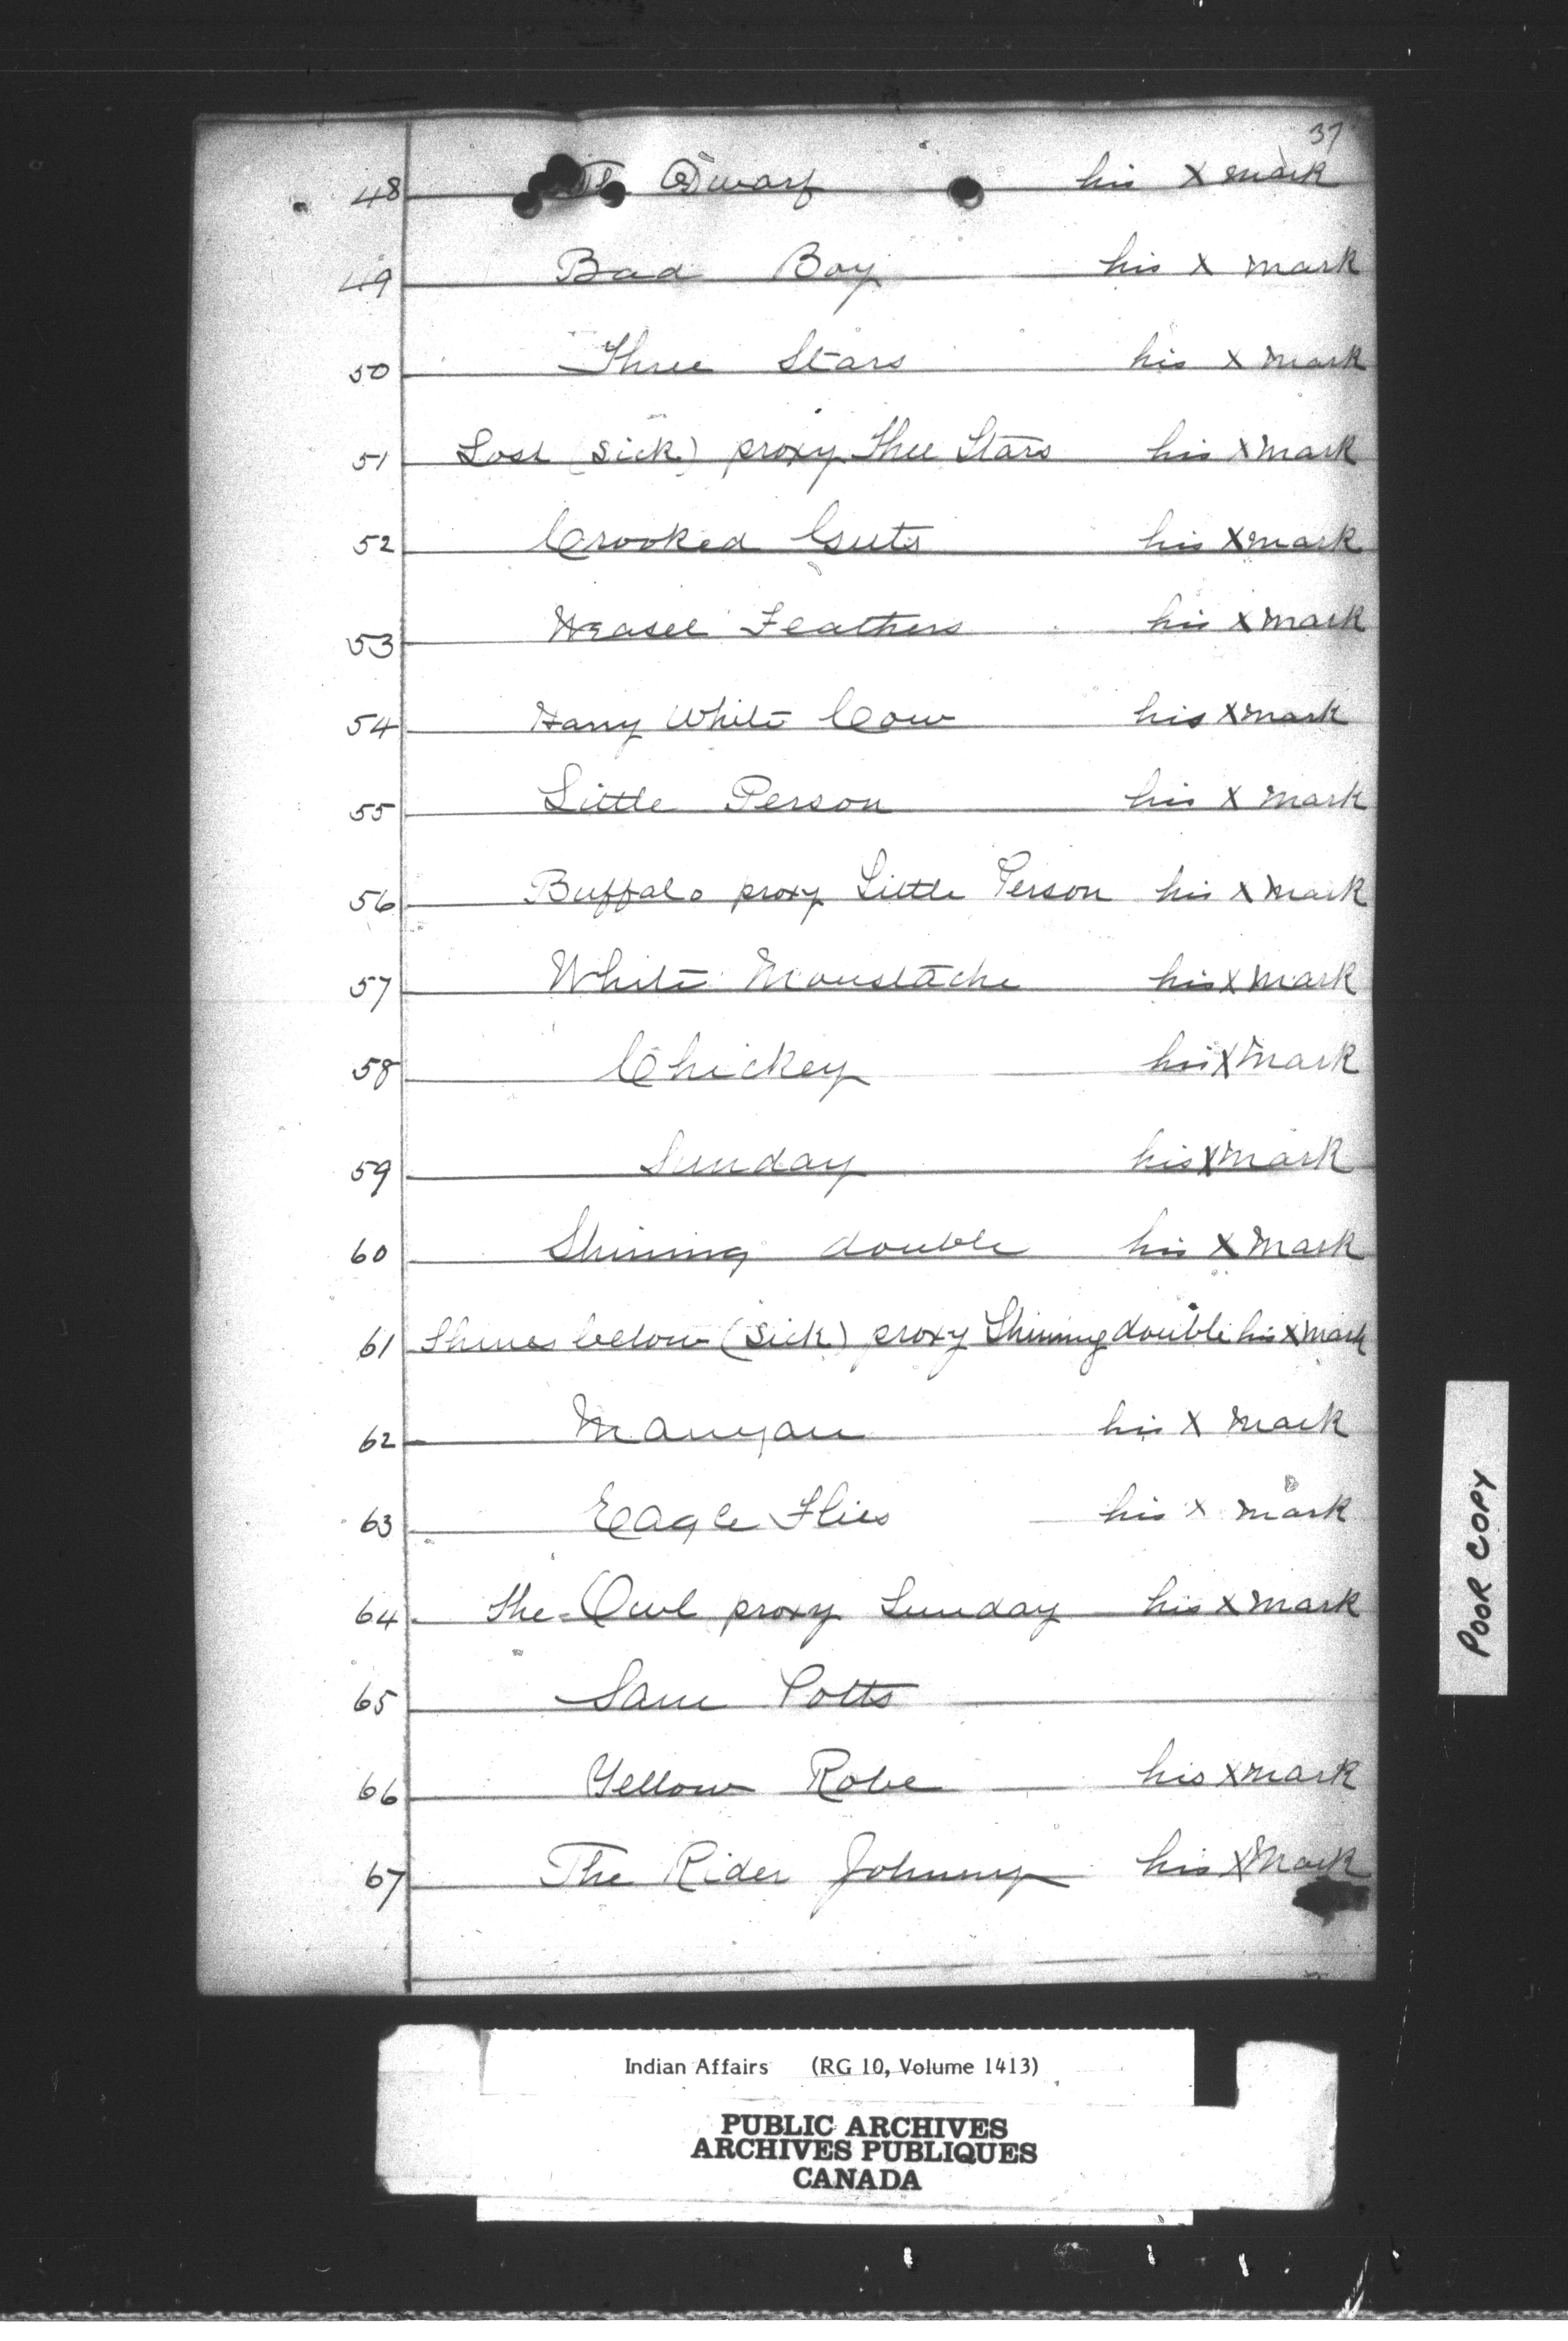 37
48 The Dwarf his X mark
49 Bad Boy his X mark
50 Three Stars his X mark
51 Lost (sick) proxy Three Stars his X mark
52 Crooked Guts his X mark
53 Weasel Feathers his X mark
54 Harry White Cow his X mark
55 Little Person his X mark
56 Buffalo proxy Little Person his X mark
57 White Moustache his X mark
58 Chickey his X mark
59 Sunday his X mark
60 Shining double his X mark
61 Shines below (sick) proxy Shining double his X mark
62 his X mark
63 Eagle Flies his X mark
64 The Owl proxy Sunday his X mark
65 Sam Potts
66 Yellow Robe his X mark
67 The Rider Johnny his X mark
POOR COPY
Indian Affairs (RG 10, Volume 1413)
PUBLIC ARCHIVES
ARCHIVES PUBLIQUES
CANADA